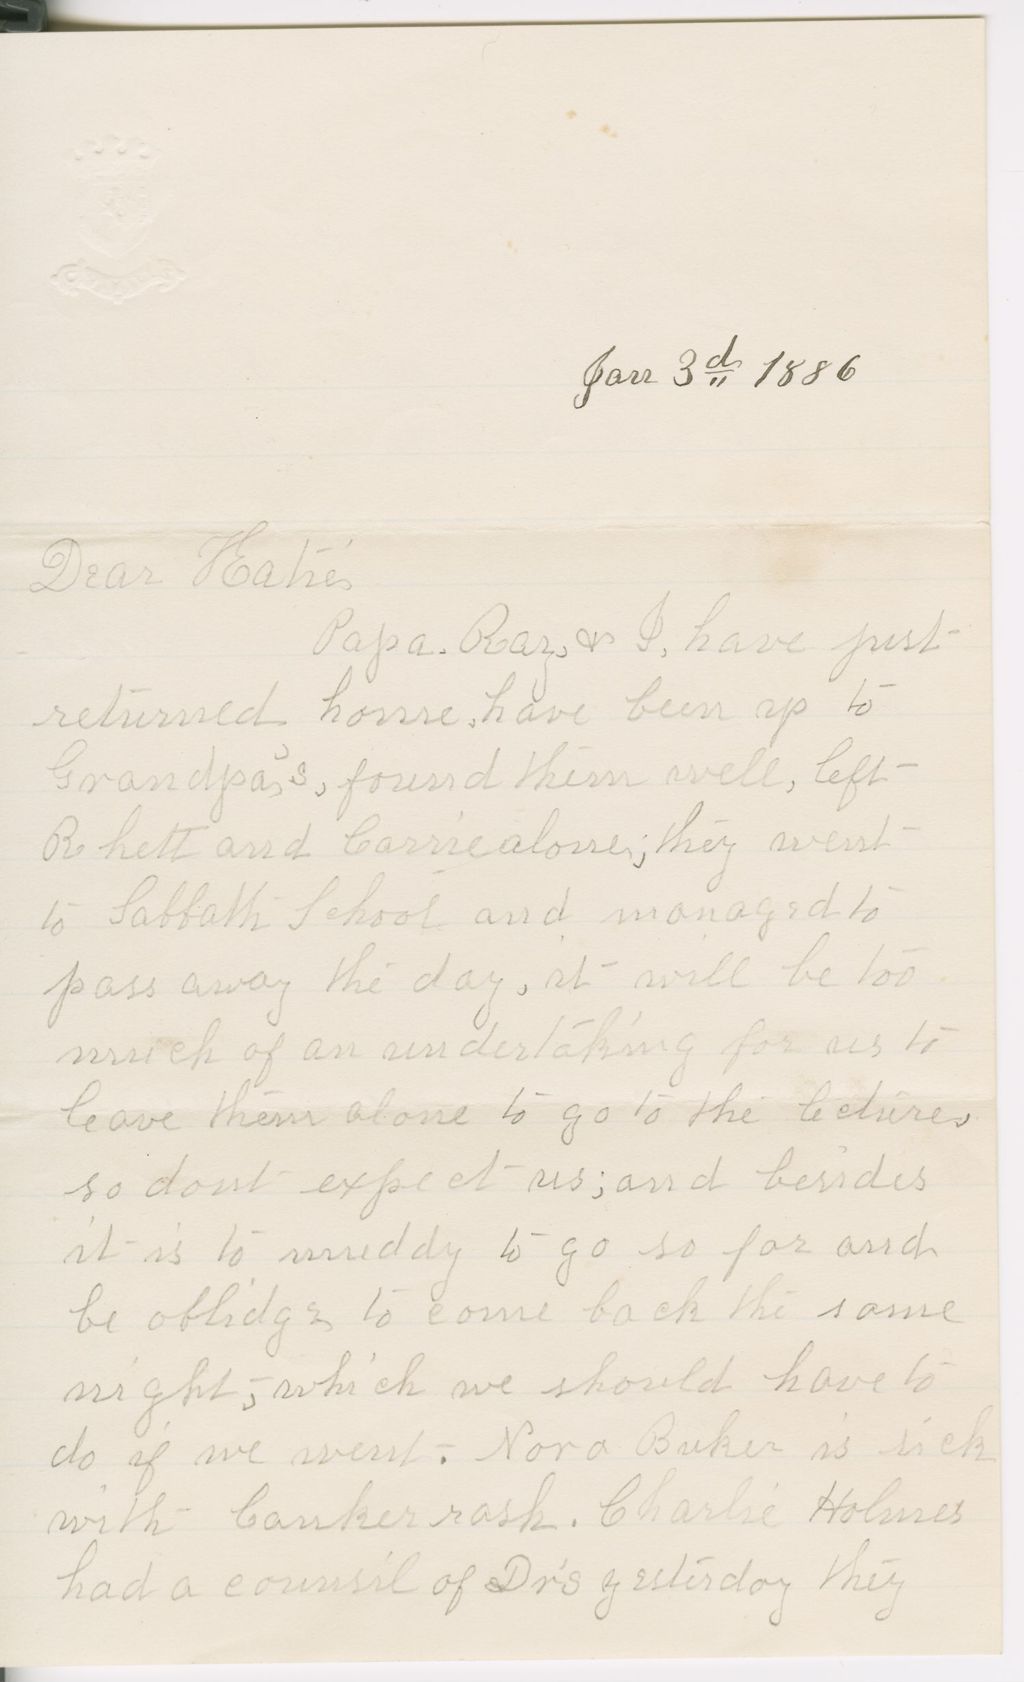 Jan 3d 1886
Dear Katie,
Papa. Ray, & I, have just
returned home, have been up to
Grandpa's, found them well, left
Rhett and Carrie alone; they went
to Sabbath School and managed to
pass away the day, it will be too
much of an undertaking for us to
leave them alone to go to the lecture,
so dont expect us; and besides
it is to muddy to go so far and
be oblidge, to come back the same
night, which we should have to
do if we went. Nora Buker is sick
with Canker rash. Charlie Holmes
had a counsil of Drs yesterday they